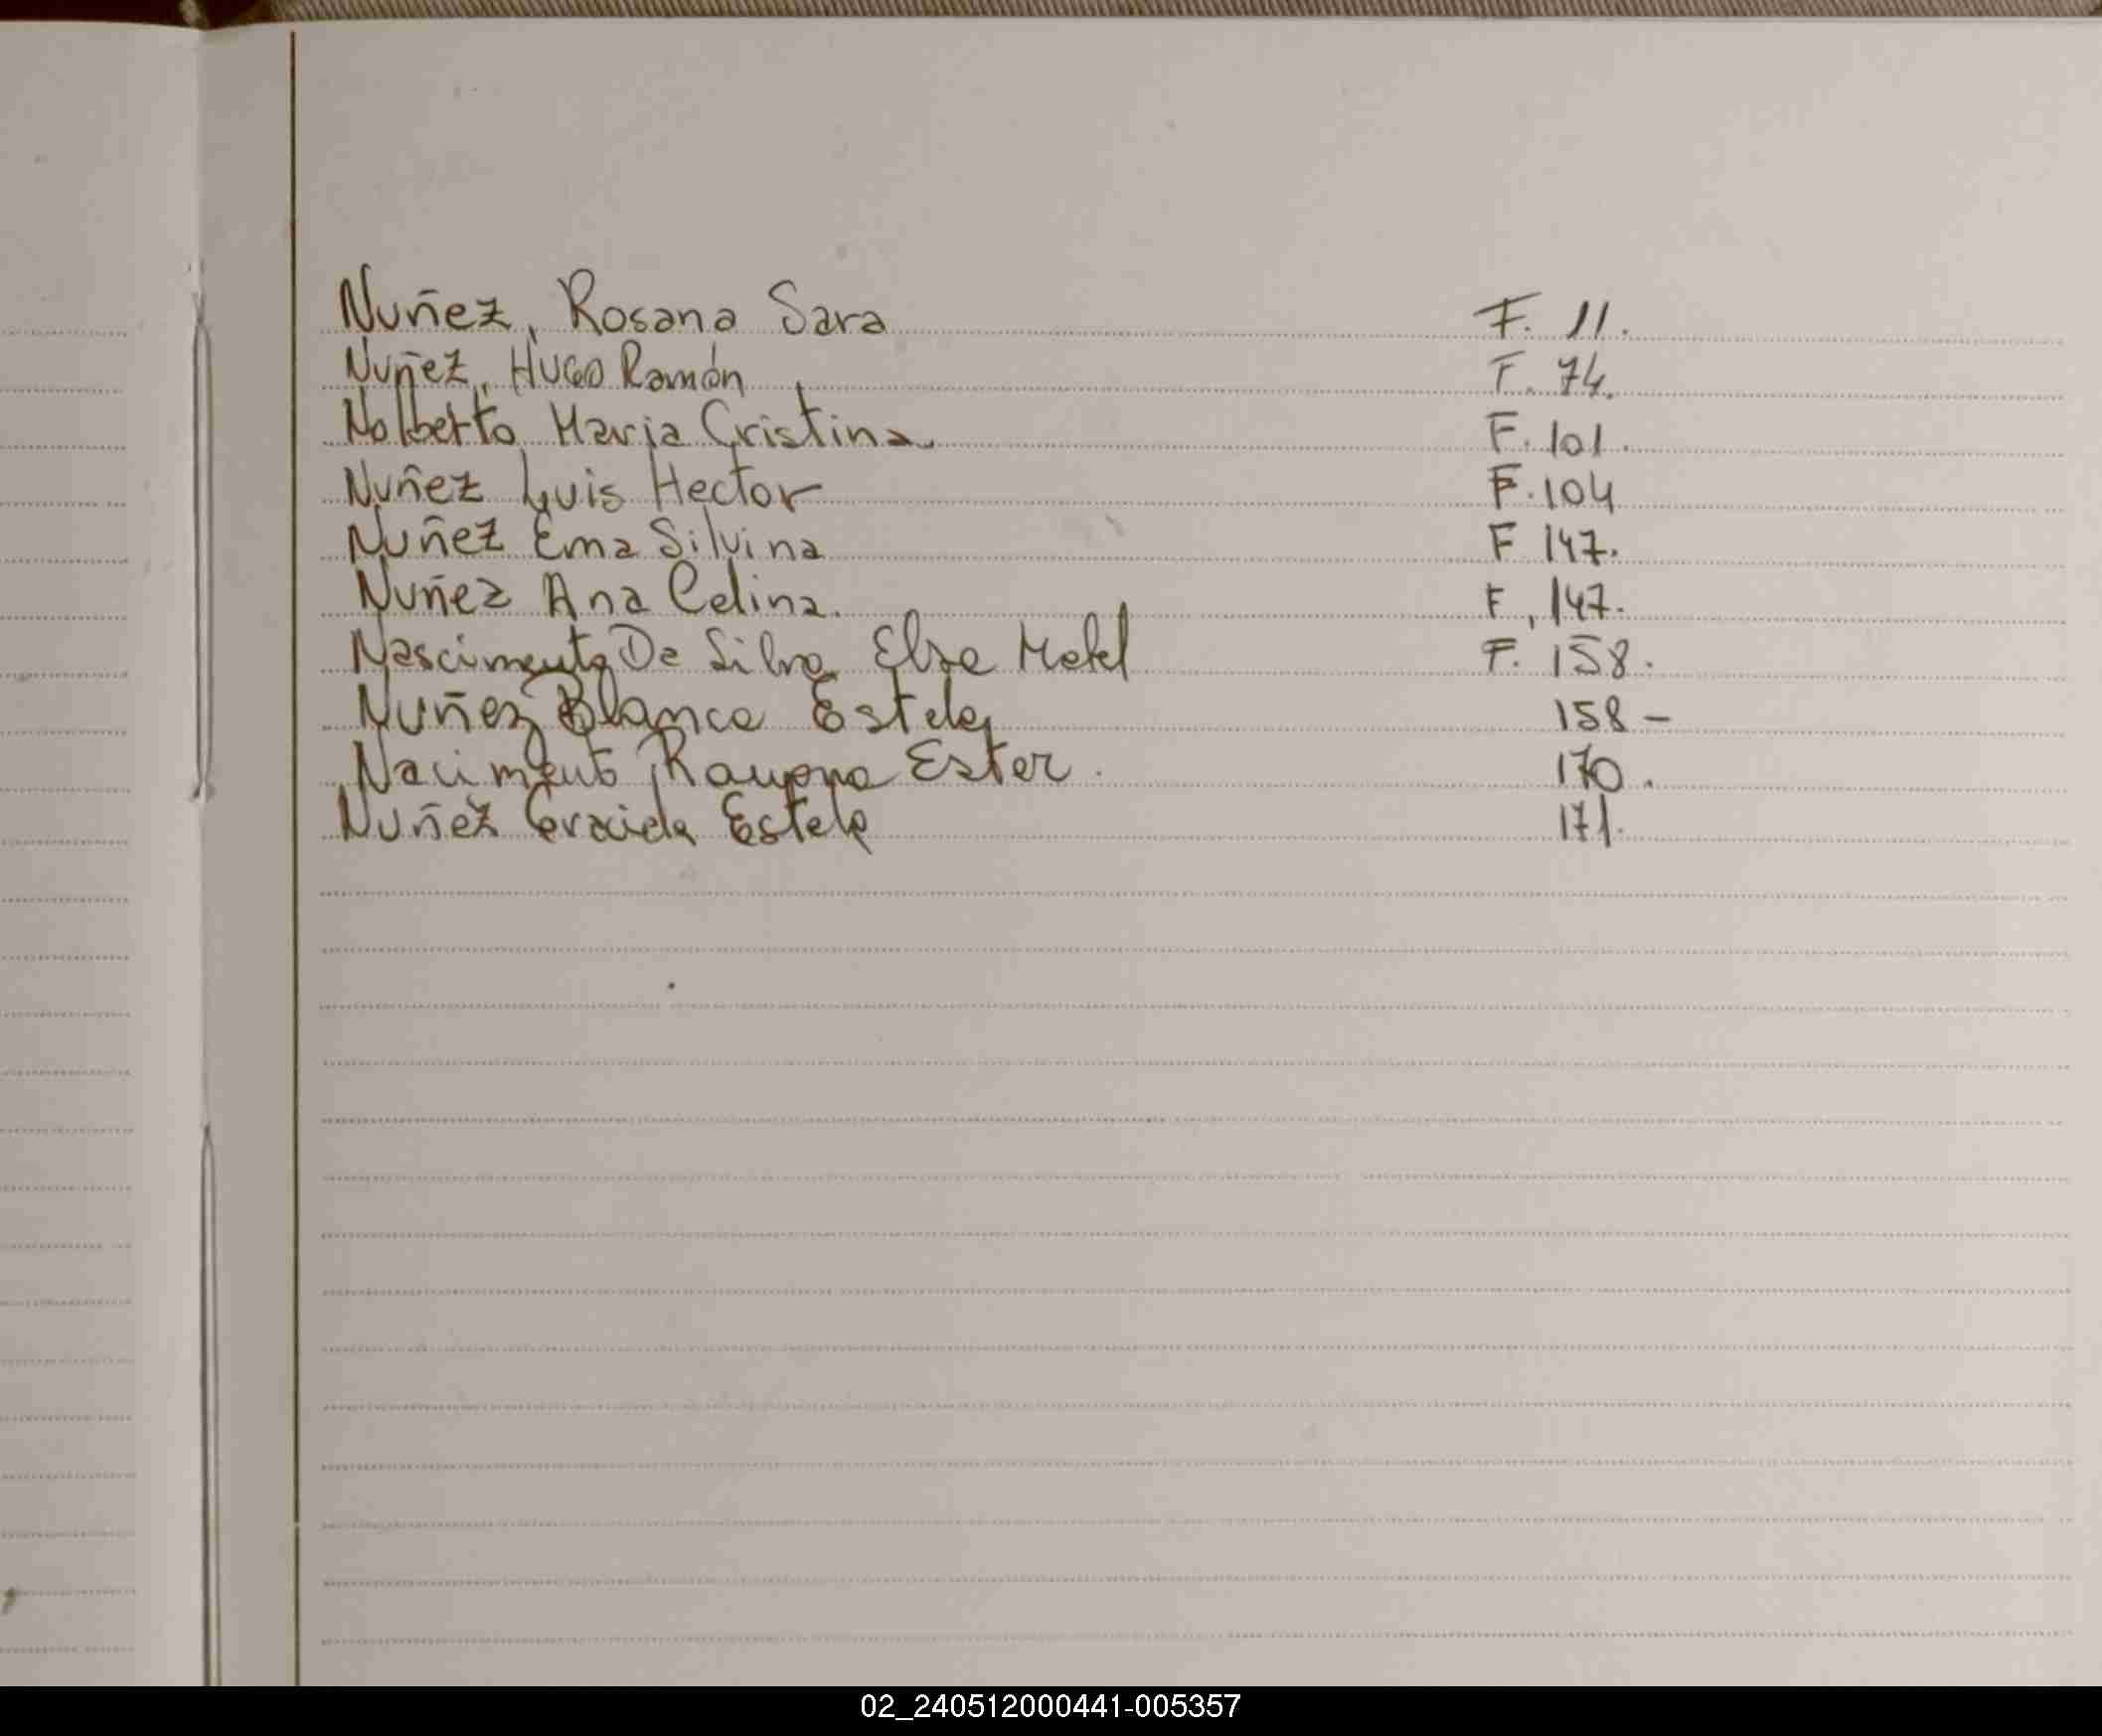 Nuñez, Rosana Sara F. 11.
Nuñez, Hugo Ramón F. 74.
Nolberto Maria Cristina. F. 101.
Nuñez Luis Hector F. 104
Nuñez Ema Silvina F 147.
Nuñez Ana Celina. F, 147.
Nascimento Da Silva Elsa Mabel F. 158.
Nuñez Blanca Estela 158 -
Nacimento Ramona Ester. 170.
Nuñez Graciela Estela 171.
02_240512000441-005357